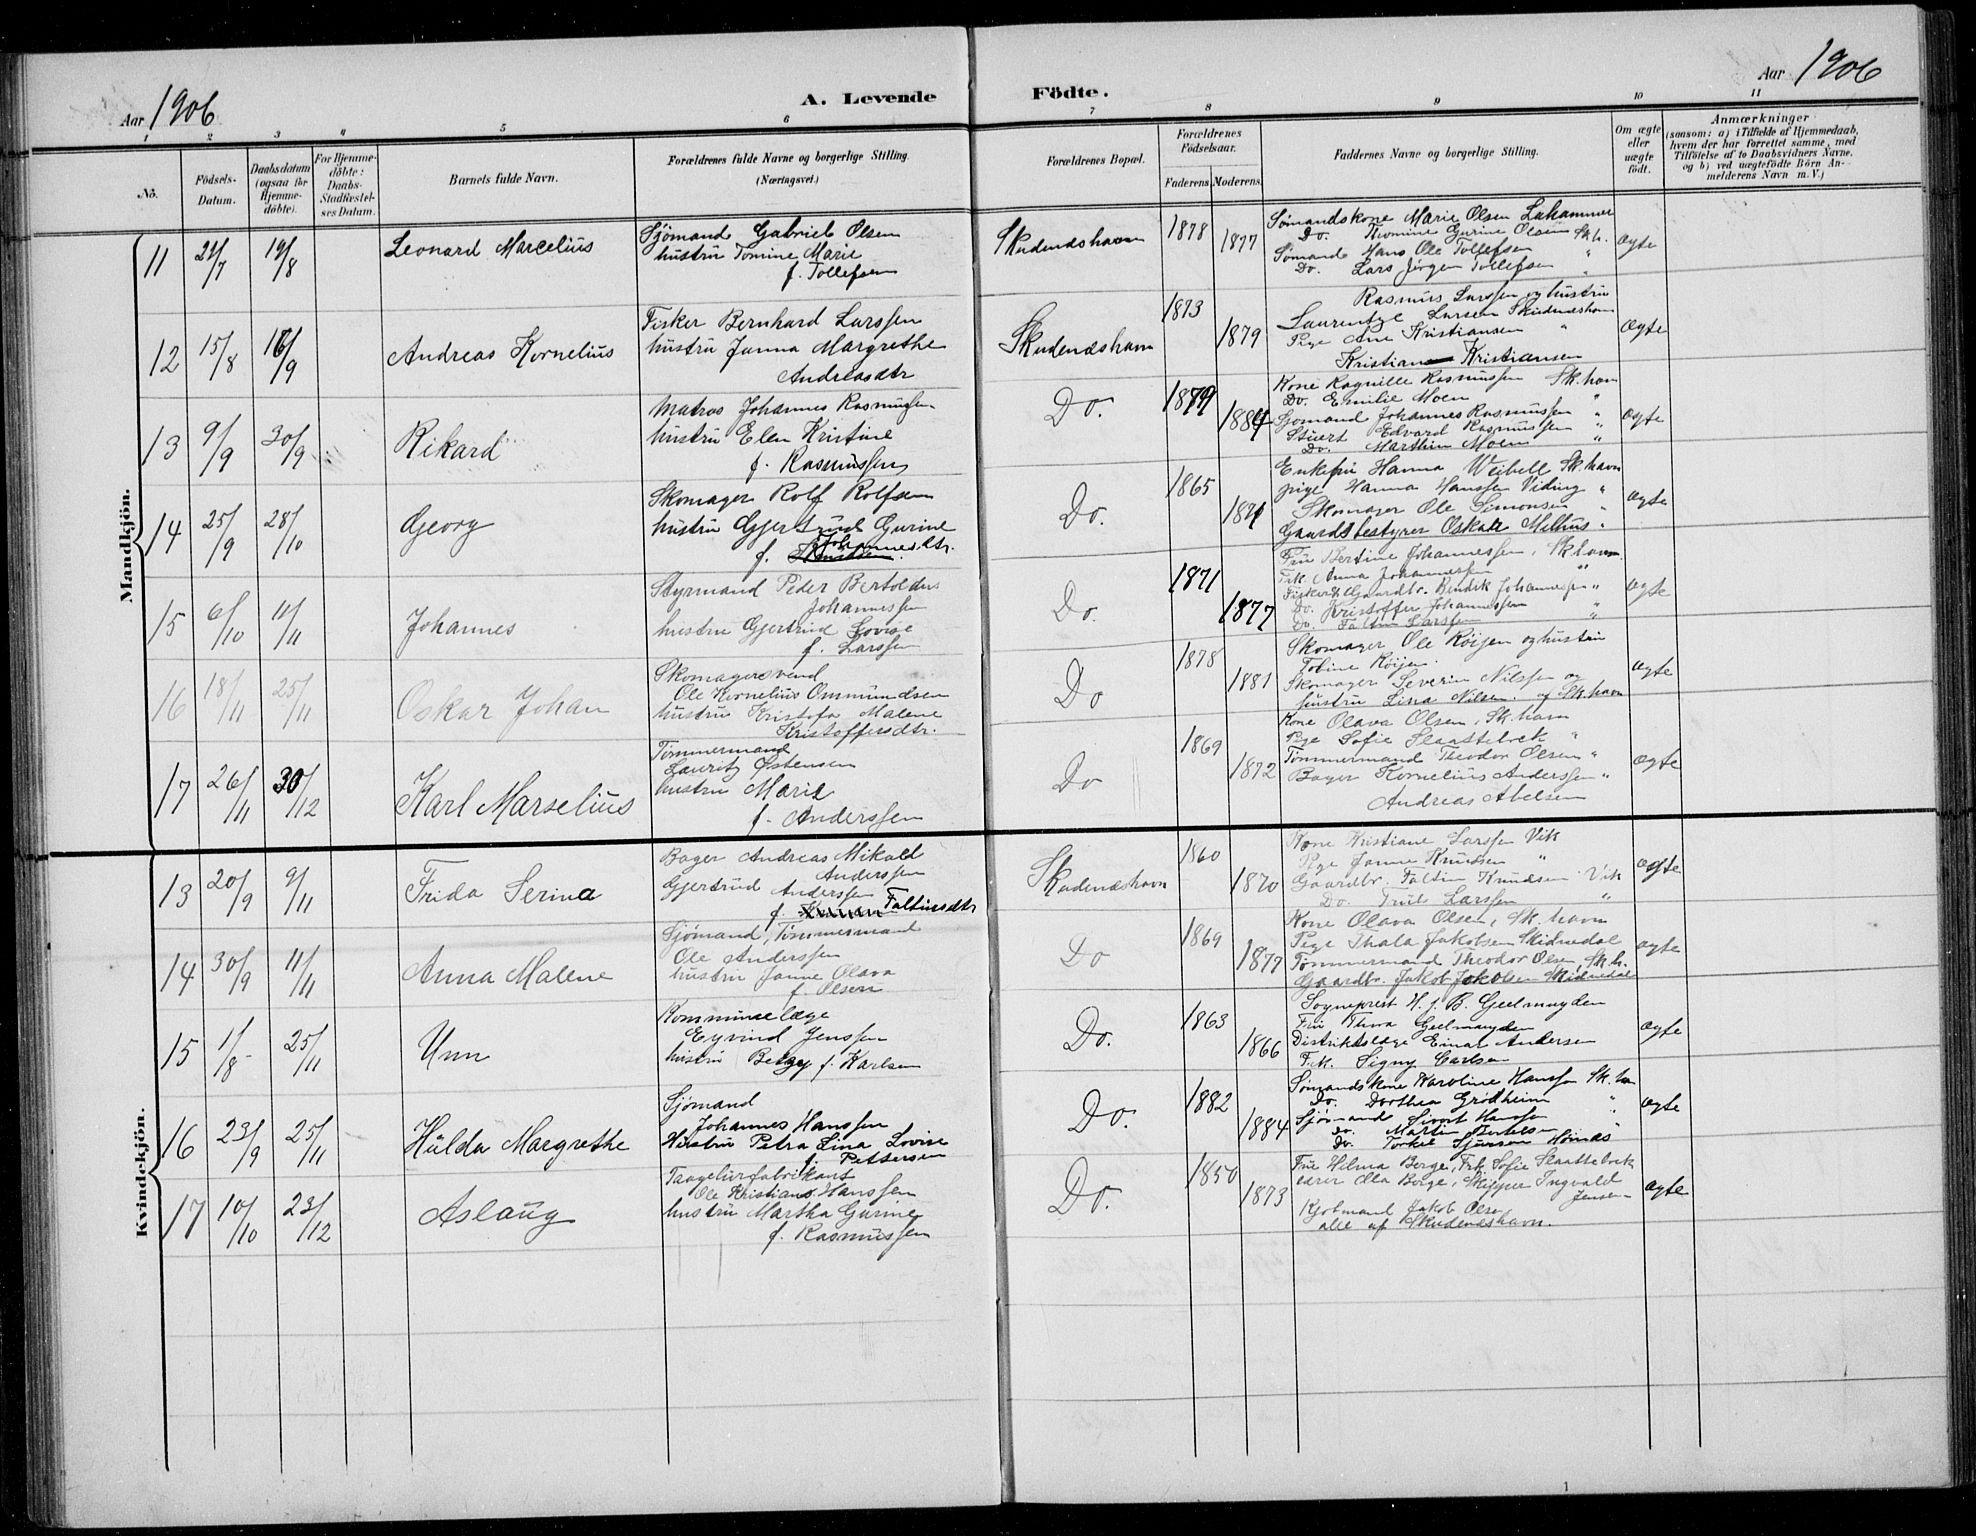 Aar 1906
A. Levende Födte.
Aar 1906
1 2 3 4 5 6 7 8 9 10 11
No.
Födsels-Datum.
Daabsdatum (ogsaa for Hjemme-döbte).
For Hjemme-döbte: Daabs-Stadfæstel-ses Datum.
Barnets fulde Navn.
Forældrenes fulde Navne og borgerlige Stilling (Næringsvei.)
Forældrenes Bopæl.
Forældrenes Födselsaar.
Faderens. Moderens.
Faddernes Navne og borgerlige Stilling.
Om ægte eller uægte födt.
Anmærkninger
(saasom: a) i Tilfælde af Hjemmedaab,
hvem der har forrettet samme, med
Tilföielse af to Daabsvidners Navne,
og b) ved uægtefödte Börn An-
melderens Navn m. V.)
Mandkjön.
11 21/7 19/8 Leonard Marcelius
Sjömand Gabriel Olsen
hustru Tomine Marie
f. Tollefsen
Skudeneshavn 1878 1877
Sömandskone Marie Olsen Lahammer
Do. Thomine Gurine Olsen Sk.h.
Sömand Hans Ole Tollefsen "
Do. Lars Jörgen Tollefsen "
ægte
12 15/8 16/9 Andreas Kornelius
Fisker Bernhard Larssen
hustru Janna Margrethe
Andreasdtr
Skudeneshavn 1873 1879
Rasmus Larssen og hustru
Laurentze Larsen Skudeneshavn
Pige Ane Kristiansen "
Kristian Kristiansen
ægte
13 9/9 30/9 Rikard
Matros Johannes Rasmussen
hustru Elen Kristine
f. Rasmussen
Do. 1879 1884
Kone Ragnille Rasmussen Sk.havn
Do. Emilie Moen "
Sjömand Johannes Rasmussen "
Stuert Edvard Rasmussen "
Do. Marthin Moen "
ægte
14 25/9 28/10 Georg
Skomager Rolf Rolfsen
hustru Gjertrud Gurine
f. Johannesdtr.
Do. 1865 1871
Enkefru Hanna Weibell Sk.havn
pige Hanna Hanssen Viding "
Skomager Ole Simonsen "
Gaardsbestyrer Oskar Melhus "
ægte
15 6/10 11/11 Johannes
Styrmand Peder Bertoldus
Johannessen
hustru Gjertrud Lovise
f. Larssen
Do. 1871 1877
Fru Bertine Johannessen, Sk.havn
Frk. Anna Johannessen "
Fisker & Gaardbr. Bendik Johannessen "
Do. Kristoffer Johannessen "
Do. Faltin Larssen "
ægte
16 18/11 25/11 Oskar Johan
Skomagersvend
Ole Kornelius Ommundsen
hustru Kristofa Malene
Kristoffersdtr.
Do 1878 1881
Skomager Ole Röijen og hustru
Tobine Röijen.
Skomager Severin Nilssen og
hustru Lina Nilsen. af Sk.havn
ægte
17 26/11 30/12 Karl Marselius
Tömmermand
Lauritz Östensen
hustru Marie
f. Anderssen
Do 1869 1872
Kone Olava Olsen, Sk.havn
Pige Sofie Slaattebrek "
Tömmermand Theodor Olsen "
Bager Kornelius Anderssen "
Andreas Abelsen
ægte
Kvindekjön.
13 20/9 9/11 Frida Serine
Bager Andreas Mikald
Anderssen
Gjertrud Anderssen
f. Faltinsdtr
Skudeneshavn 1860 1870
Kone Kristiane Larssen Vik
Pige Janne Knudsen "
Gaardbr. Faltin Knudsen Vik
Do. Truls Larssen "
ægte
14 30/9 11/11 Anna Malene
Sjömand, Tömmermand
Ole Anderssen
hustru Janne Olava
f. Olsen
Do 1869 1877
Kone Olava Olsen, Sk.havn
Pige Thala Jakobsen Skidnedal
Tömmermand Theodor Olsen, Sk.h.
Gaardbr. Jakob Jakobsen Skidnedal
ægte
15 1/8 25/11 Unn
Kommunelæge
Eyvind Jenssen
hustru Betzy f. Karlsen
Do. 1863 1866
Sogneprest H. J. B. Geelmuyden
Fru Thora Geelmuyden
Distriktslæge Einar Andersen
Frk. Signy Carlsen
ægte
16 23/9 25/11 Hulda Margrethe
Sjömand
Johannes Hanssen
Hustru Petra Lina Lovise
f. Pettersen
Do. 1882 1884
Sömandskone Karoline Hanssen Sk.hn
Do. Dorthea Grödheim "
Sjömand Sivert Hanssen "
Do. Martin
Do. Torkel Sjursen Höinæs
ægte
17 10/10 23/12 Aslaug
Taugelivfabrikant
Ole Kristian Hanssen
hustru Martha Gurine
f. Rasmussen
Do. 1850 1873
Fru Hilma Berge, Frk. Sofie Slaattebrek
Ola Berge, Skipper Ingvald
Jensen
Kjöbmand Jakob Olsen
alle af Skudeneshavn.
ægte
1